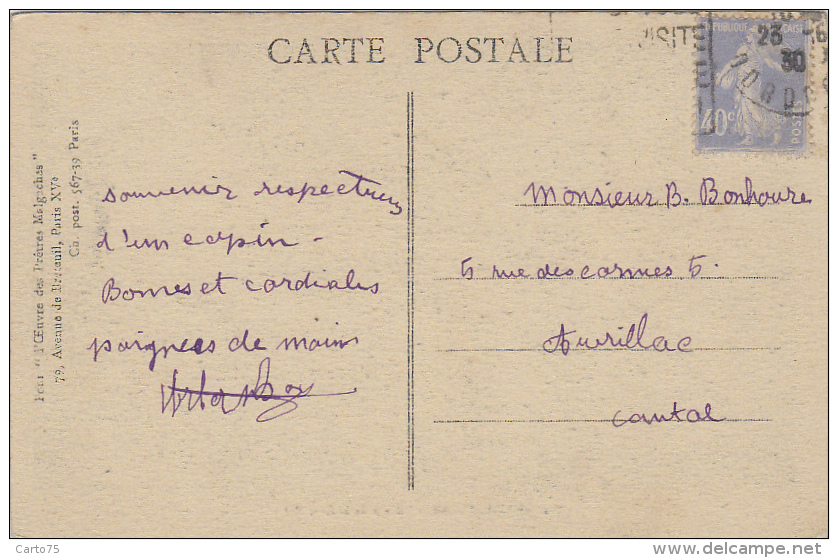 CARTE POSTALE
VISITE
REPUBLIQUE FRANÇAISE
23
30
40c
POSTES
Pour "l'Œuvre des Prêtres Malgaches"
79, Avenue de Breteuil, Paris XVe
Ch. post. 567-39 Paris
souvenir respectueux
d'un copin -
Bonnes et cordiales
poignees de mains
Monsieur B. Bonhoure
5 rue des carmes 5.
Aurillac
Cantal
Carto75
delcampe.net